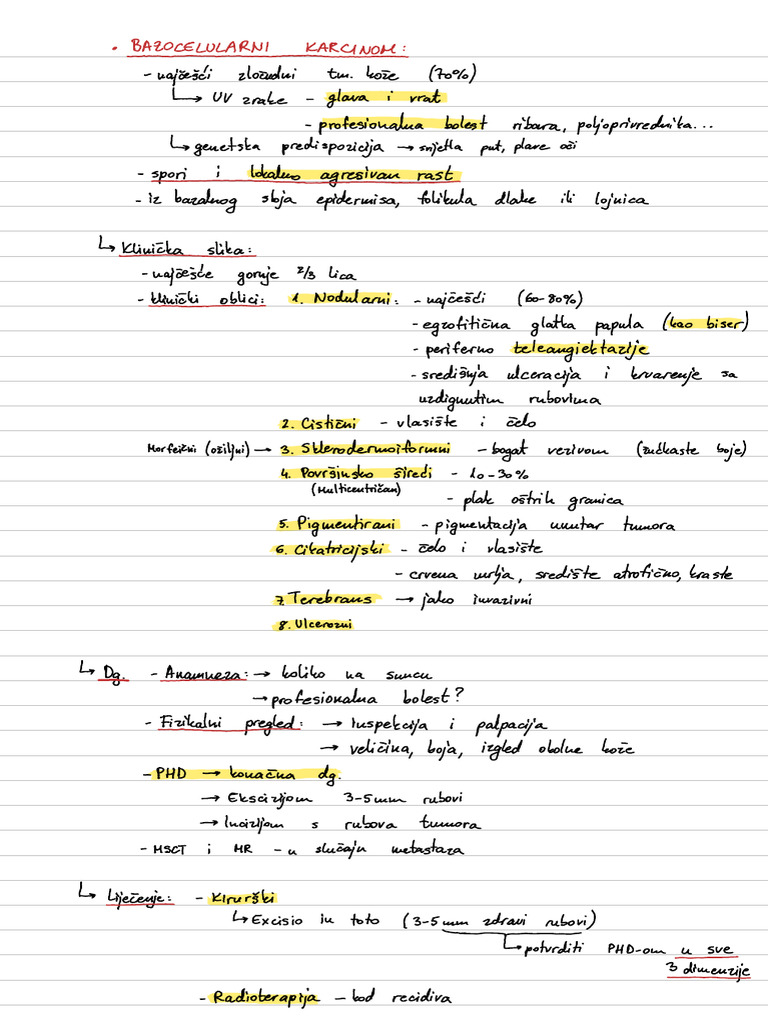 • BAZOCELULARNI KARCINOM:
- najčešći zloćudni tm. kože (70%)
↳ UV zrake - glava i vrat
- profesionalna bolest ribara, poljoprivrednika...
↳ genetska predispozicija → svjetla put, plave oči
- spori i lokalno agresivan rast
- iz bazalnog sloja epidermisa, folikula dlake ili lojnica
↳ Klinička slika:
- najčešće gornje 2/3 lica
- klinički oblici: 1. Nodularni: - najčešći (60-80%)
- egzofitična glatka papula (kao biser)
- periferno teleangiektazije
- središnja ulceracija i krvarenje sa
uzdignutim rubovima
2. Cistični - vlasište i čelo
Morfeični (ožiljni) → 3. Sklerodermoiformni - bogat vezivom (žućkaste boje)
4. Površinsko šireći - 10-30%
(Multicentričan)
- plak oštrih granica
5. Pigmentirani - pigmentacija unutar tumora
6. Cikatricijski - čelo i vlasište
- crvena mrlja, središte atrofično, kraste
7. Terebrans → jako invazivni
8. Ulcerozni
↳ Dg. - Anamneza: → koliko na suncu
→ profesionalna bolest?
- Fizikalni pregled: → Inspekcija i palpacija
→ veličina, boja, izgled okolne kože
- PHD → konačna dg.
→ Ekscizijom 3-5mm rubovi
→ Incizijom s rubova tumora
- MSCT i MR - u slučaju metastaza
↳ Liječenje: - Kirurški
↳ Excisio in toto (3-5mm zdravi rubovi)
↳ potvrditi PHD-om u sve
3 dimenzije
- Radioterapija - kod recidiva